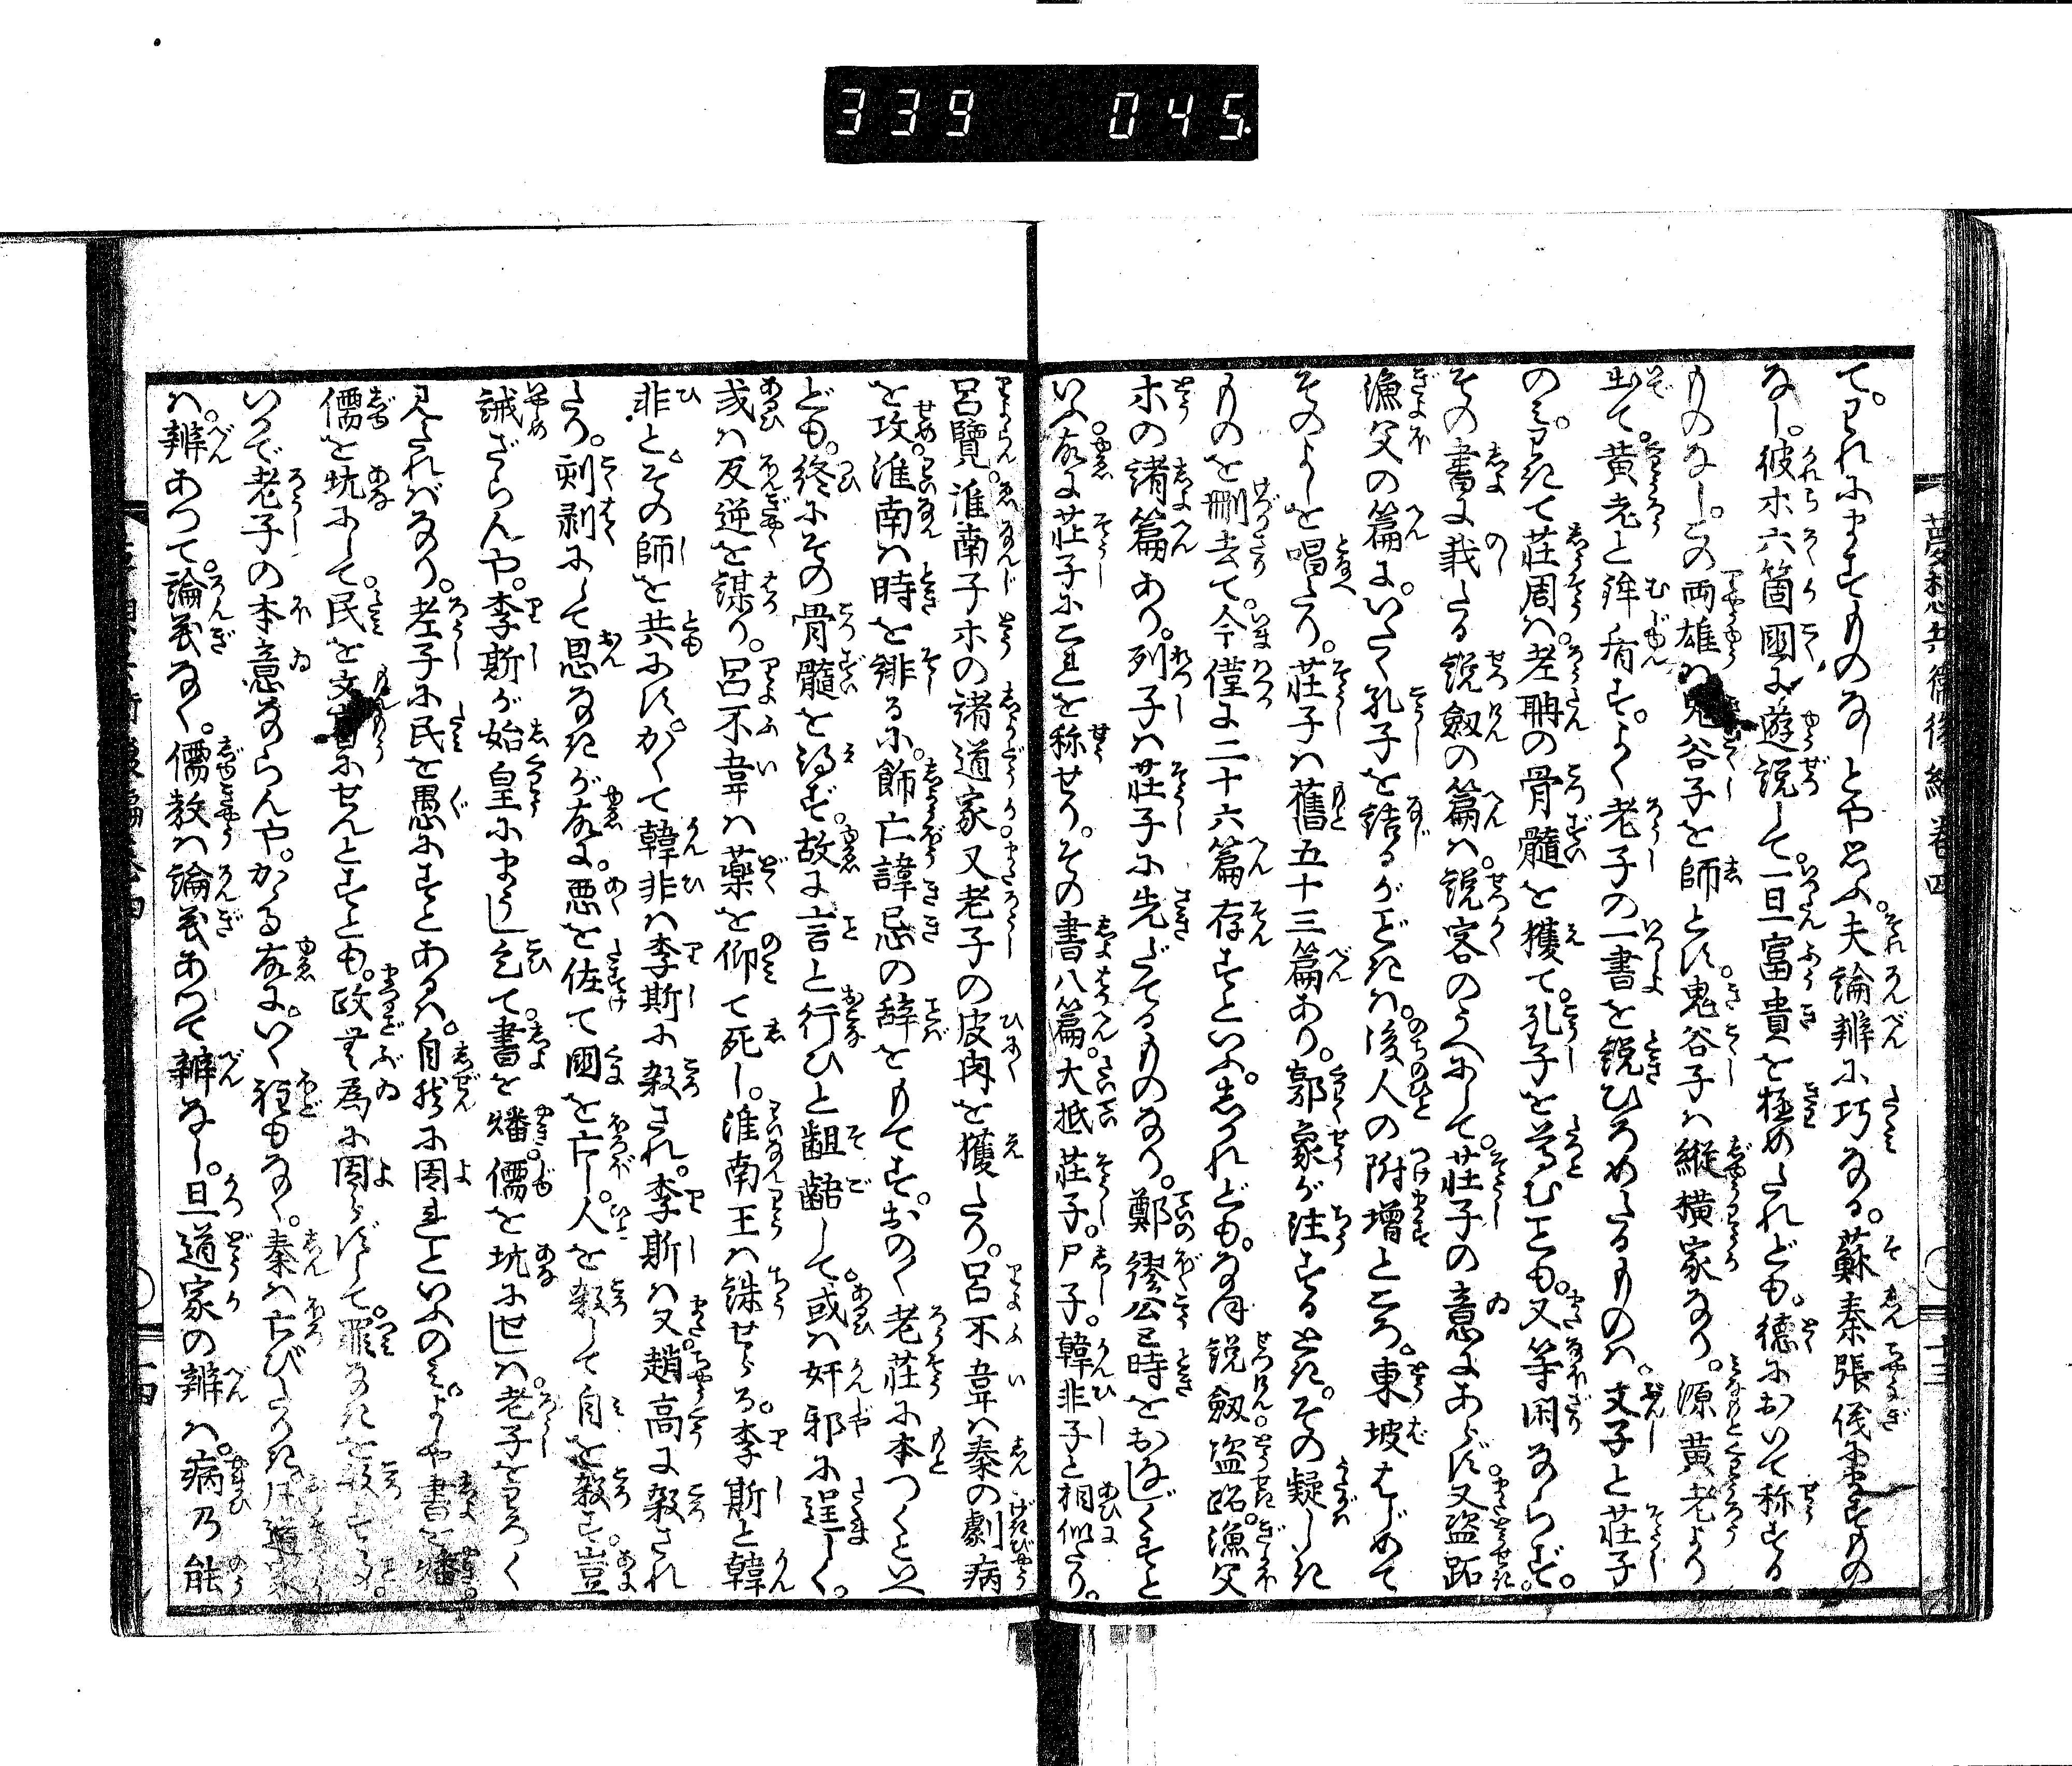 339 045
夢想兵衛後編巻四
十三
て。われにますものなしとや思ふ。夫論辨に巧なる。蘇秦張儀にますもの
なし。彼ホ六箇國に遊説して。一旦富貴を極めたれども。徳におひて称する
ものなし。この両雄は鬼谷子を師とす。鬼谷子は縦横家なり。源黄老より
出て。黄老と鉾盾す。よく老子の一書を説ひろめたるものは。文子と荘子
のミ。わきて荘周は。老聃の骨髄を獲て。孔子を尊むこも。又等閑ならず。
その書に載たる説劔の篇は。説客のうへにして。荘子の意にあらず。又盗跖。
漁父の篇に。いたく孔子を詰るがごときは。後人の附増ところ。東坡はじめて
そのよしを唱たり。荘子は舊五十三篇あり。郭象が注するとき。その疑しき
ものを刪去て。今僅に二十六篇存すといふ。しかれども。なほ説劔。盗跖。漁父
ホの諸篇あり。列子は荘子に先だてるものなり。鄭繆公と時をおなじくすと
いふ。故に荘子にこれを称せり。その書八篇。大抵荘子。尸子。韓非子と相似たり。
呂覽。淮南子ホの諸道家。又老子の皮肉を獲たり。呂不韋は秦の劇病
を攻。淮南は時を誹るに。飾亡諱忌の辞をもてす。おの〱老荘に本つくといへ
ども。終にその骨髄を得ず。故に言と行ひと齟齬して。或は奸邪に逞しく。
或は反逆を謀り。呂不韋は薬を仰て死し。淮南王は誅せらる。李斯と韓
非とその師を共にす。かくて韓非は李斯に殺され。李斯は又趙高に殺され
たり。刻剥にして恩なきが故に。悪を佐て國を亡し。人を殺して自を殺す。豈
誡ざらんや。李斯が始皇にまうし乞て。書を燔。儒を坑にせしは。老子をわろく
見たればなり。老子に民を愚にすとあるは。自然に因れといふのミ。よしや書を燔
儒を坑にして。民を文盲にせんとすとも。政無為に因らずして。罪なきを殺すこと。
いかで老子の本意ならんや。かゝる故に。いく程もなく。秦は亡びたりき。
は。辨あつて。論義なく。儒教は論義あつて辨なし。且道家の辨は。病乃能